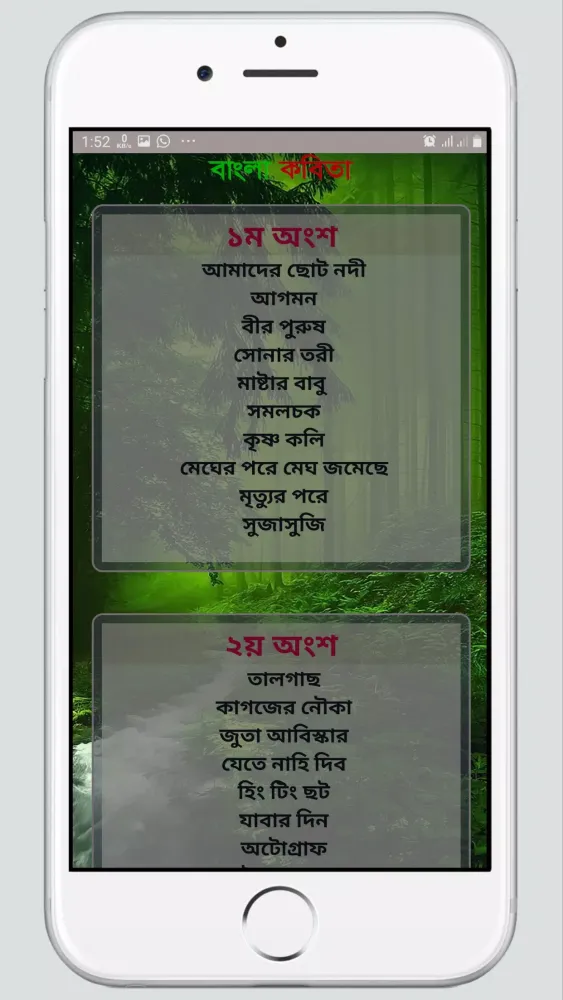 1:52 0 KB/s ...
বাংলা কবিতা
১ম অংশ
আমাদের ছোট নদী
আগমন
বীর পুরুষ
সোনার তরী
মাষ্টার বাবু
সমলচক
কৃষ্ণ কলি
মেঘের পরে মেঘ জমেছে
মৃত্যুর পরে
সুজাসুজি
২য় অংশ
তালগাছ
কাগজের নৌকা
জুতা আবিস্কার
যেতে নাহি দিব
হিং টিং ছট
যাবার দিন
অটোগ্রাফ